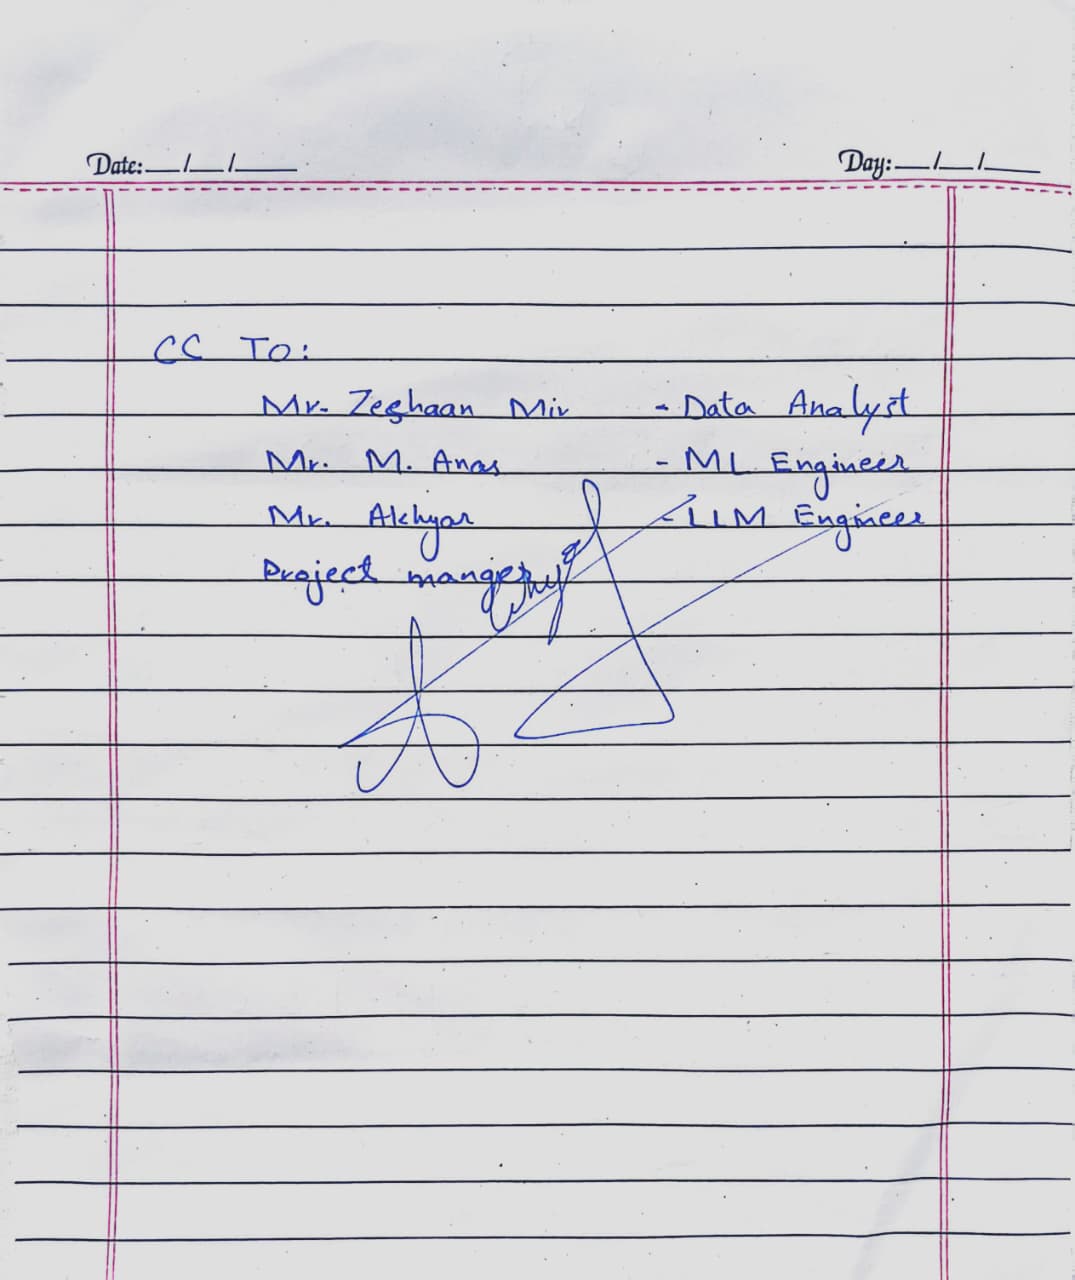 Date: __/__/____ Day: __/__/____
CC To:
Mr. Zeshaan Mir - Data Analyst
Mr. M. Anas - ML Engineer
Mr. Akhyar - LLM Engineer
Project manger